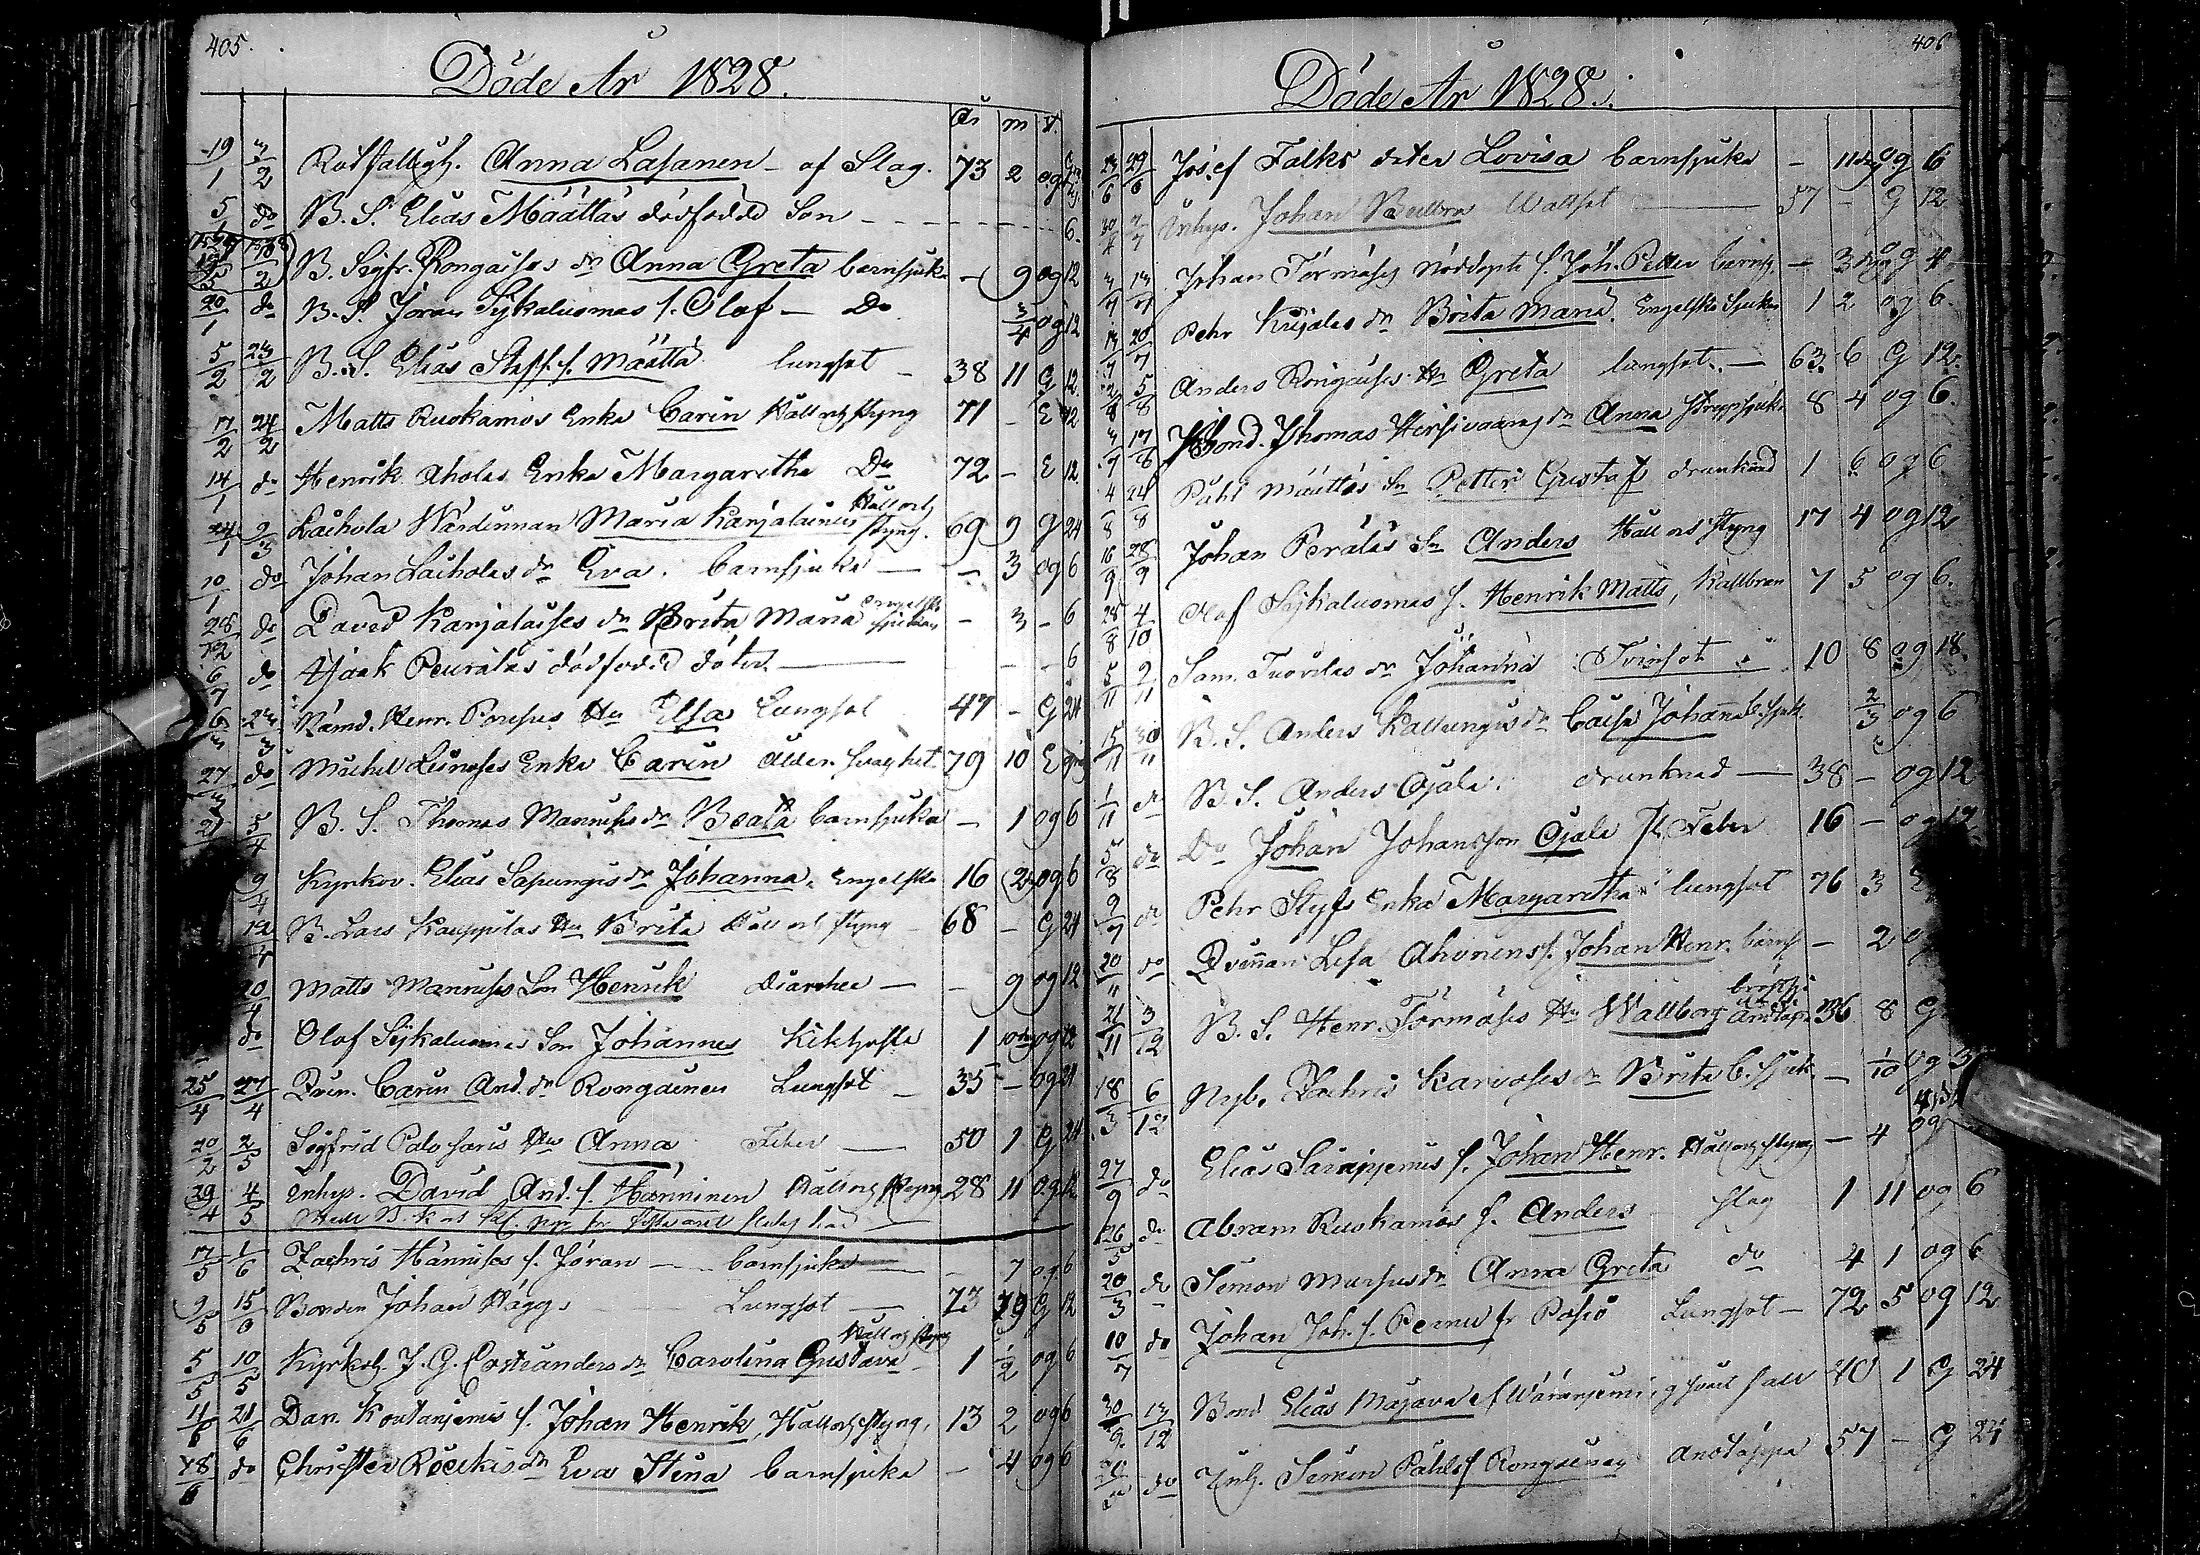 405.
Döde År 1828.
år m d.
19/1 3/2 Rotfattigh. Anna Lasanen - af Slag. 73 2 og
5/1 do B. S. Elias Määttäs dödfödde Son 6
B. Sigfr. Rongaises dr Anna Greta barnsjuka - 9 og 12
20/1 do B. S. Jöran Sijkaluomas s. Olof - Do 3/4 og 12
5/2 23/2 B. S. Elias Staff. s. Määttä lungsot - 38 11 G 12
17/2 24/2 Matts Ruokamos Enka Carin Håll och Styng 71 - E 12
14/1 do Henrik Aholas Enka Margaretha Do 72 - E 12
24/1 2/3 Laihola Wärdinnan Maria Karjalainen Håll och styng. 69 9 G 24
10/1 do Johan Laiholas dr Eva. barnsjuka - 3 og 6
28/12 do David Karjalaises dr Brita Maria Engelska sjukan - 3 - 6
6/7 do Isaak Peurälas dödfödd doter - - 6
6/3 23/3 Nämd. Henr. Posises Hu Elsa Lungsot 47 - G 24
27/3 do Michel Leinoses Enka Carin Ålder. svaghet 79 10 E
21 5/4 B. S. Thomas Mannises dr Beata barnsjuka - 1 og 6
9/4 Kyrkov. Elias Sapungis dr Johanna. Engelska 16 2 og 6
12/4 B. Lars Kauppilas Hu Brita Håll och styng 68 - G 24
20/4 Matts Mannises Son Henrik Diarrhee - - 9 og 12
do Olof Sijkaluomas Son Johannes Kikhosta 1 10 og 12
25/4 27/4 Qvin. Carin And. dr Rongainen Lungsot - 35 - og 24
20/2 2/5 Sigfrid Palosaris Hu Anna Feber 50 1 G 24
29/4 4/5 Inhys. David And. s. Hänninen Håll och Styng 28 11 og 12
17/5 1/6 Zachris Hännises s. Jöran - barnsjuka - 7 og 6
9/5 15/6 Bonden Johan Hägg Lungsot 73 9 G 12
5/5 10/5 Kyrkoh. J. G. Costianders dr Carolina Gustava Håll och styng 1 1/2 og 6
11/6 21/6 Dan. Kontanjemis s. Johan Henrik, Håll och styng, 13 2 og 6
18/6 do Christer Röeckis dr Eva Stina barnsjuka - 4 og 6
406
Döde År 1828.
29/6 Josef Falks doter Lovisa barnsjuka - 11 dag og 6
30/4 7/7 Inhys. Johan Wattsot 57 - G 12
3/7 13/7 Johan Törmäses nöddöpt s. Joh. Petter barnsj. - 3 dag og 4
14/7 20/7 Pehr Kujalas dr Brita Maria. Engelska Sjukan 1 2 og 6.
5/8 Anders Rongaises Hu Greta lungsot. - 63. 6 G 12.
17/8 Bond. Thomas Hirsivaaras dr Anna Strypsjuka 8 4 og 6.
4/8 24/8 Påhl Määttäs Sn Petter Gustaf drunknad 1 6 og 6
16/9 28/9 Johan Peräläs Sn Anders Håll och Styng 17 4 og 12
28/8 4/10 Olof Sijkaluomas s. Henrik Matts, Kallbran 7 5 og 6.
5/11 2/11 Sam. Tuovilas dr Johanna Tvinsot 10 8 og 18.
15/11 30/11 B. S. Anders Kallungis dr Caisa Johanna b. sjuk. 2/3 og 6
1/11 do B. S. Anders Ojala. drunknad - 38 - og 12
5/8 do Do Johan Johansson Ojala Feber 16 - og 12
9/7 do Pehr Styfs Enka Margaretha lungsot 76 3
20/11 do Qvinnan Lisa Ahonens s. Johan Henr. barns - 2 og
21/11 3/12 B. S. Henr. Törmäses Hu Wallborg bröstsj. Andtäpa 36 8 G
18/3 6/12 Nyb. Zachris Karvoses dr Brita b. sjuk. - 1/10 og 3
27/9 do Elias Särkijemis s. Johan Henr. Håll och styng - 4 og
26/5 do Abram Ruokamos s. Anders slag 1 11 og 6
20/3 do Simon Mursus dr Anna Greta do 4 1 og 6
10/7 do Johan Joh. s. Pernu fr Posio Lungsot - 72 5 og 12
30/9 13/12 Bond Elias Majava af Waranjemi, 40 1 G 24
do Inh. Simon Påhls s Rongainen Andtäppa 57 - G 24